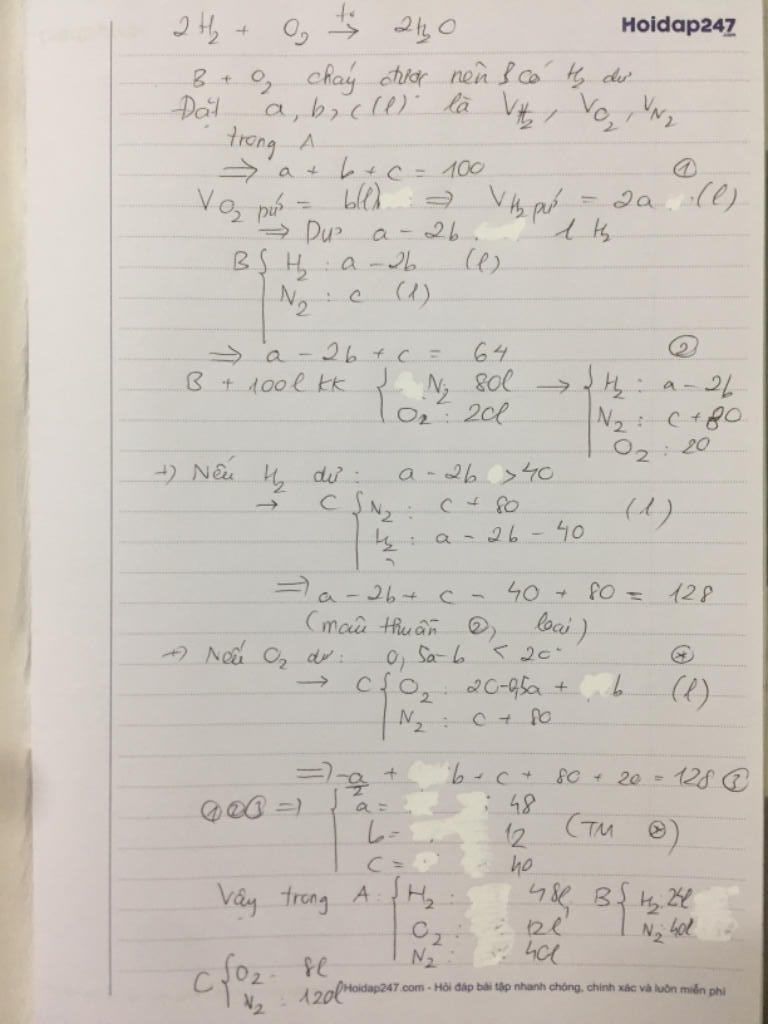 2H₂ + O₂ →(t°) 2H₂O
Hoidap247
B + O₂ cháy được nên B có H₂ dư
Đặt a, b, c (l) là V_H₂, V_O₂, V_N₂
trong A
⇒ a + b + c = 100 ①
V O₂ pứ = b(l) ⇒ V H₂ pứ = 2a (l)
⇒ Dư a - 2b l H₂
B { H₂ : a - 2b (l)
N₂ : c (l)
⇒ a - 2b + c = 64 ②
B + 100l KK { N₂ 80l → { H₂ : a - 2b
O₂ : 20l N₂ : c + 80
O₂ : 20
+) Nếu H₂ dư : a - 2b > 40
→ C { N₂ : c + 80 (l)
H₂ : a - 2b - 40
⇒ a - 2b + c - 40 + 80 = 128
(mâu thuẫn ②, loại)
+) Nếu O₂ dư : 0,5a - b < 20 (*)
→ C { O₂ : 20-0,5a + b (l)
N₂ : c + 80
⇒ -a/2 + b + c + 80 + 20 = 128 ③
①②③ ⇒ { a = 48
b = 12 (TM (*))
c = 40
Vậy trong A : { H₂ : 48l, B { H₂ : 24l
O₂ : 12l N₂ : 40l
N₂ : 40l
C { O₂ : 8l
N₂ : 120l
Hoidap247.com - Hỏi đáp bài tập nhanh chóng, chính xác và luôn miễn phí